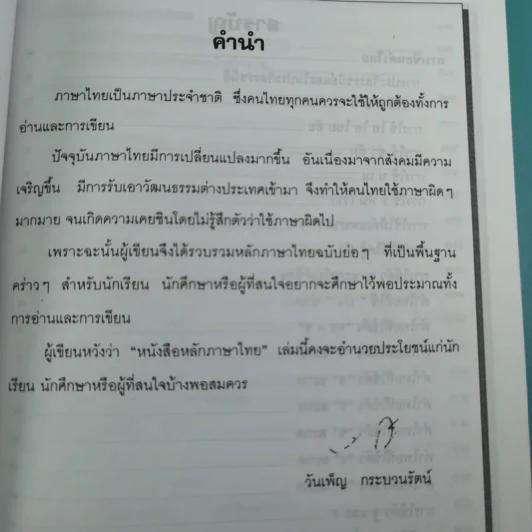 คำนำ
ภาษาไทยเป็นภาษาประจำชาติ ซึ่งคนไทยทุกคนควรจะใช้ให้ถูกต้องทั้งการ
อ่านและการเขียน
ปัจจุบันภาษาไทยมีการเปลี่ยนแปลงมากขึ้น อันเนื่องมาจากสังคมมีความ
เจริญขึ้น มีการรับเอาวัฒนธรรมต่างประเทศเข้ามา จึงทำให้คนไทยใช้ภาษาผิดๆ
มากมาย จนเกิดความเคยชินโดยไม่รู้สึกตัวว่าใช้ภาษาผิดไป
เพราะฉะนั้นผู้เขียนจึงได้รวบรวมหลักภาษาไทยฉบับย่อๆ ที่เป็นพื้นฐาน
คร่าวๆ สำหรับนักเรียน นักศึกษาหรือผู้ที่สนใจอยากจะศึกษาไว้พอประมาณทั้ง
การอ่านและการเขียน
ผู้เขียนหวังว่า "หนังสือหลักภาษาไทย" เล่มนี้คงจะอำนวยประโยชน์แก่นัก
เรียน นักศึกษาหรือผู้ที่สนใจบ้างพอสมควร
วันเพ็ญ กระบวนรัตน์